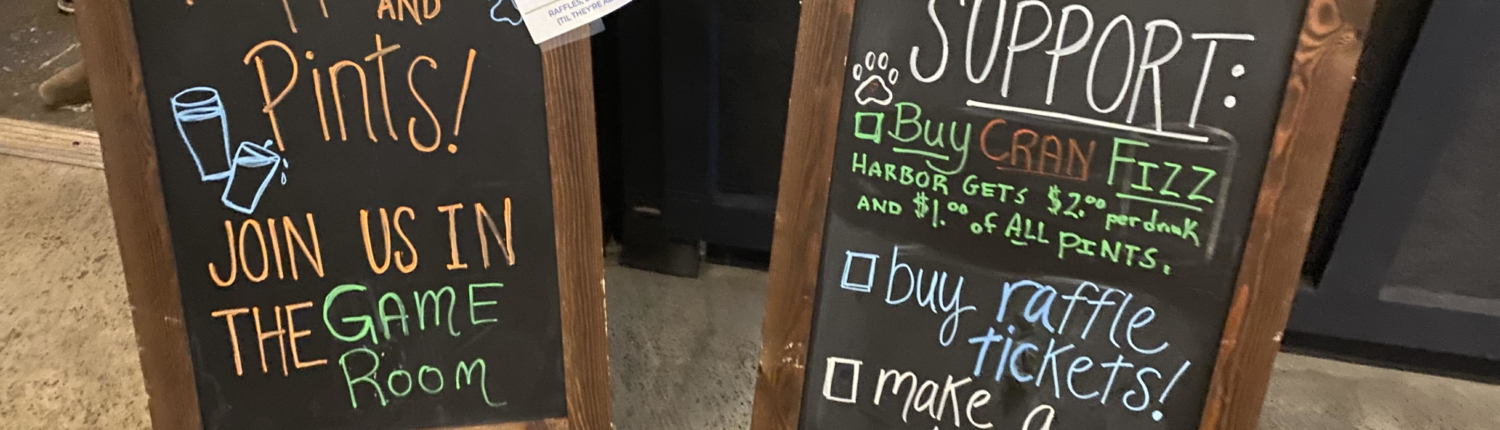 AND
Pints!
JOIN US IN
THE GAME
ROOM
RAFFLES,
(TIL THEY'RE
SUPPORT:
Buy CRAN FIZZ
HARBOR GETS $2.00 per drink
AND $1.00 of ALL PINTS.
buy raffle
tickets!
make a